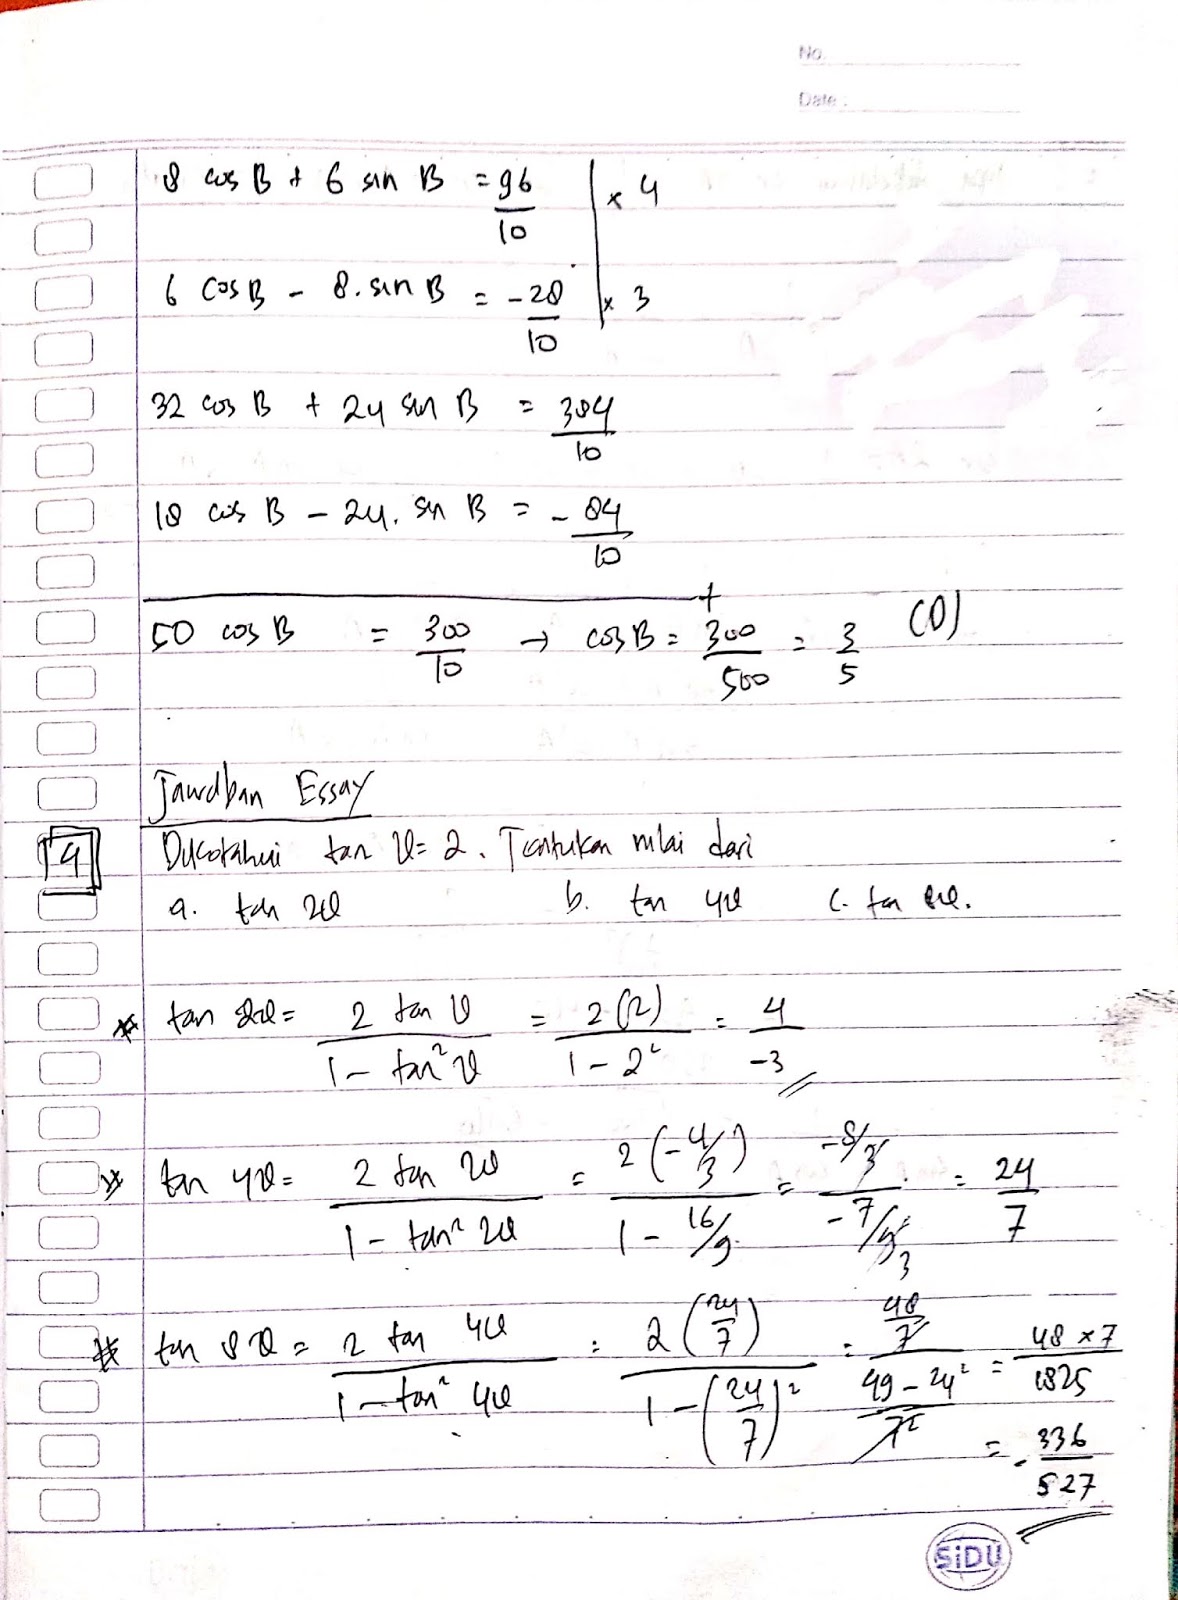 No.
Date :
8 cos B + 6 sin B = 96/10 | x 4
6 cos B - 8. sin B = -28/10 | x 3
32 cos B + 24 sin B = 384/10
18 cos B - 24. sin B = - 84/10
+
50 cos B = 300/10 → cos B = 300/500 = 3/5 (D)
Jawaban Essay
4 Diketahui tan θ = 2. Tentukan nilai dari
a. tan 2θ b. tan 4θ c. tan 8θ.
* tan 2θ = 2 tan θ / 1 - tan² θ = 2(2) / 1 - 2² = 4/-3
* tan 4θ = 2 tan 2θ / 1 - tan² 2θ = 2(-4/3) / 1 - 16/9 = -8/3 / -7/9 3 = 24/7
* tan 8θ = 2 tan 4θ / 1 - tan² 4θ = 2(24/7) / 1 - (24/7)² = 48/7 / 49 - 24²/7² = 48 x 7 /
= - 336/527
SiDU